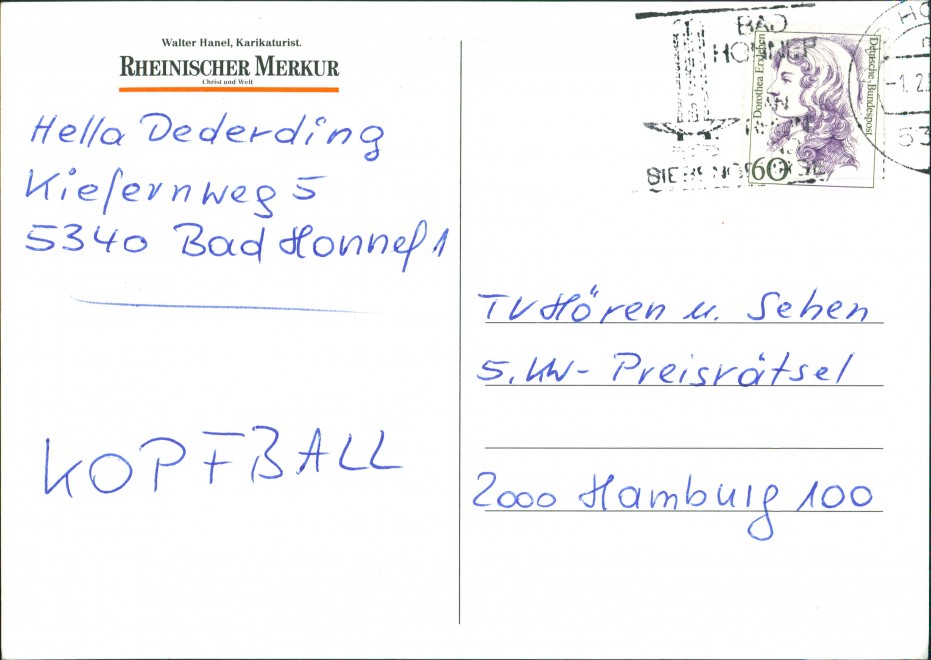 Walter Hanel, Karikaturist.
RHEINISCHER MERKUR
Christ und Welt
Hella Dederding
Kiefernweg 5
5340 Bad Honnef 1
KOPFBALL
BAD
HONNEF
AN
SIEBENGE
Dorothea Erxleben
Deutsche Bundespost
60
HO
-1.2
53
TV Hören u. Sehen
5. KW- Preisrätsel
2000 Hamburg 100